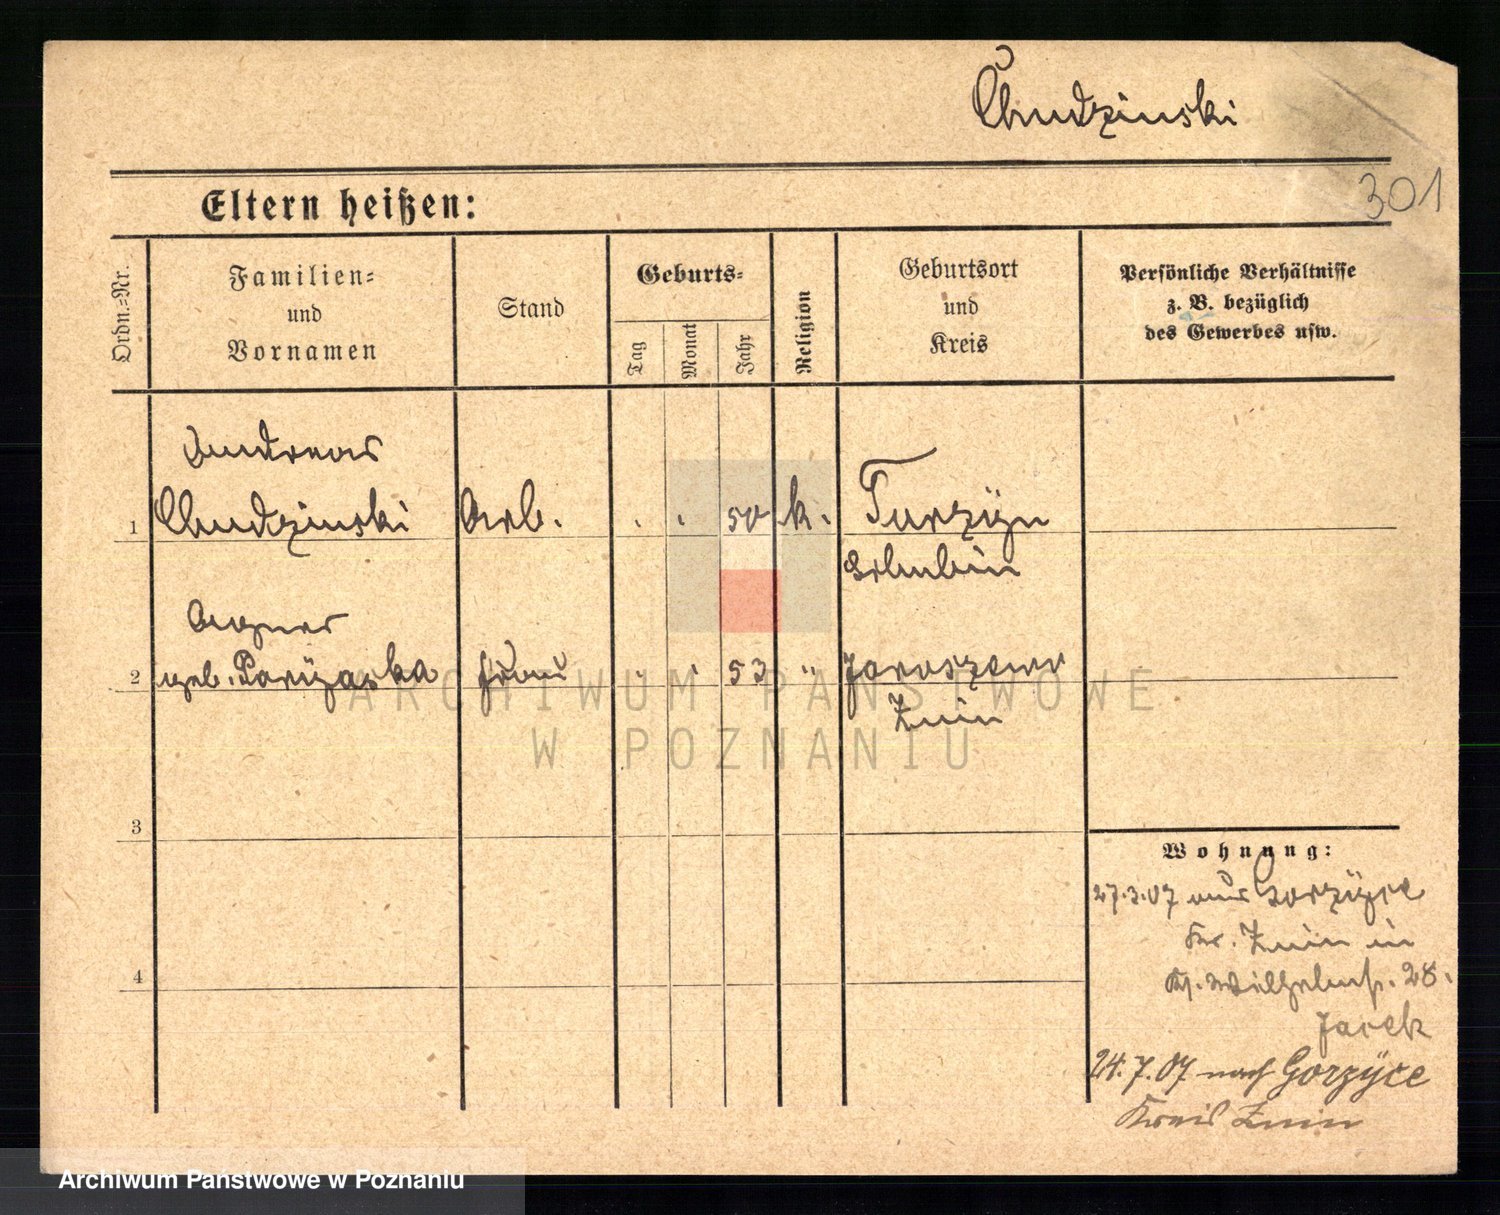 Chudzinski
301
Eltern heißen:
Ordn.=Nr.
Familien=
und
Vornamen
Stand
Geburts=
Tag
Monat
Jahr
Religion
Geburtsort
und
Kreis
Persönliche Verhältnisse
z. B. bezüglich
des Gewerbes usw.
Andreas
1 Chudzinski Arb. . . 50 k. Turzÿn
Schubin
Agnes
2 geb. frau " " 53 " Jaroszewo
Znin
3
4
Wohnung:
27.3.07 aus Gorzÿce
Kr. Znin in
Wilhelmst. 28.
Jacek
24.7.07 nach Gorzÿce
Kreis Znin
ARCHIWUM PAŃSTWOWE
W POZNANIU
Archiwum Państwowe w Poznaniu